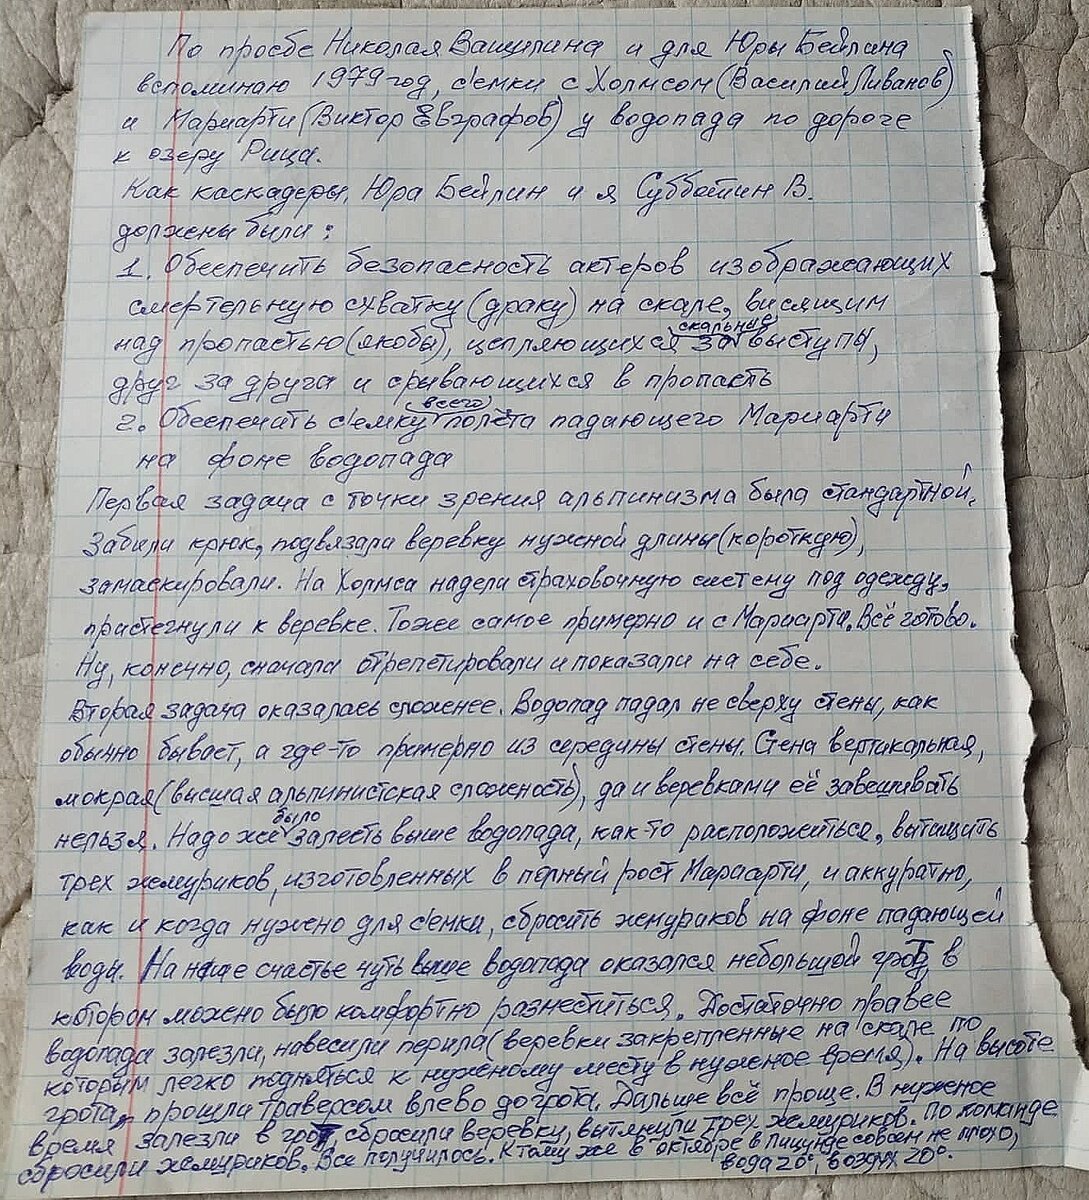 По прозбе Николая Ващилина и для Юры Бейлина
вспоминаю 1979 год, семки с Холмсом (Василий Ливанов)
и Мариарти (Виктор Евграфов) у водопада по дороге
к озеру Рица.
Как каскадеры, Юра Бейлин и я Субботин В.
должены были:
1. Обеспечить безопасность актеров изображающих
смертельную схватку (драку) на скале, висящим
над пропастью (якобы), цепляющихся за скальные выступы,
друг за друга и срывающихся в пропасть
2. Обеспечить семку всего полёта падающего Мариарти
на фоне водопада
Первая задача с точки зрения альпинизма была стандартной.
Забили крюк, подвязали веревку нужной длины (короткую),
замаскировали. На Холмса надели страховочную систему под одежду,
пристегнули к веревке. Тоже самое примерно и с Мариарти. Всё готово.
Ну, конечно, сначала отрепетировали и показали на себе.
Вторая задача оказалась сложнее. Водопад падал не сверху стены, как
обычно бывает, а где-то примерно из середины стены. Стена вертикальная,
мокрая (высшая альпинистская сложность), да и веревками её завешивать
нельзя. Надо же было залесть выше водопада, как-то расположиться, вытащить
трех жмуриков, изготовленных в полный рост Мариарти, и аккуратно,
как и когда нужно для семки, сбросить жмураков на фоне падающей
воды. На наше счастье чуть выше водопада оказался небольшой грот, в
котором можно было комфортно разместиться. Достаточно правее
водопада залезли, навесили перила (веревки закрепленные на скале по
которым легко подняться к нужному месту в нужное время). На высоте
грота, прошли траверсом влево до грота. Дальше всё проще. В нужное
время залезли в грот, сбросили веревку, вытянули трех жмуриков. По команде
сбросили жмуриков. Все получилось. К тому же в октябре в Пицунде совсем не плохо,
вода 20°, воздух 20°.